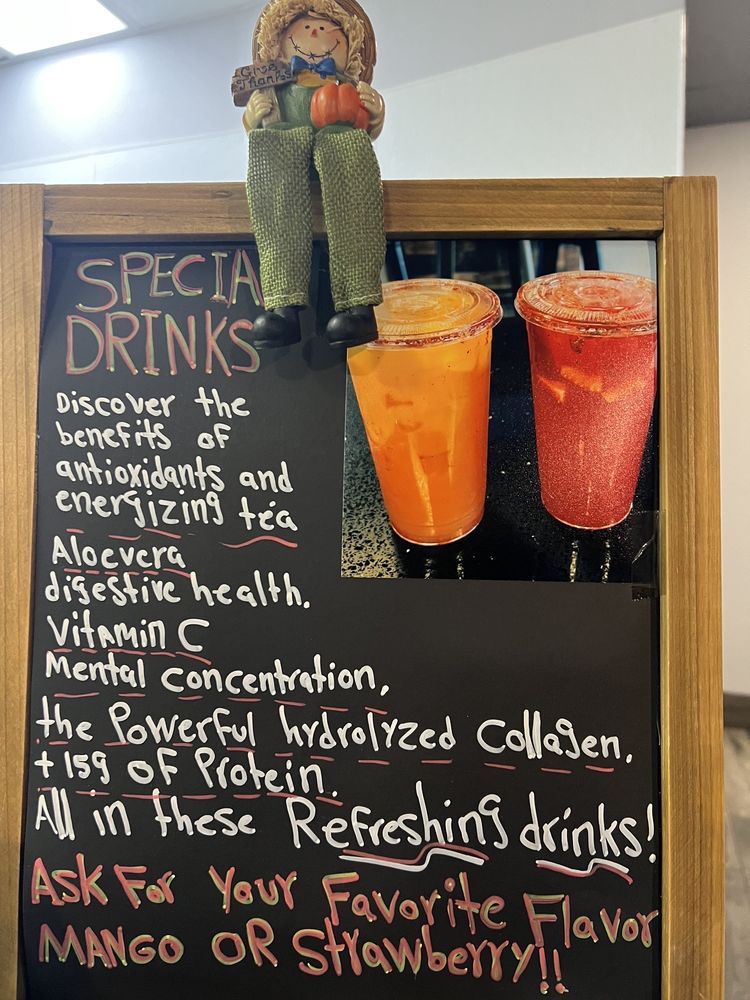 Give
Thanks
SPECIA
DRINKS
Discover the
benefits of
antioxidants and
energizing tea
Aloevera
digestive health.
VitAMin C
Mental concentration,
the Powerful hydrolyzed Collagen.
+ 15g OF Protein.
All in these Refreshing drinks!
ASK For Your Favorite Flavor
MANGO OR Strawberry!!